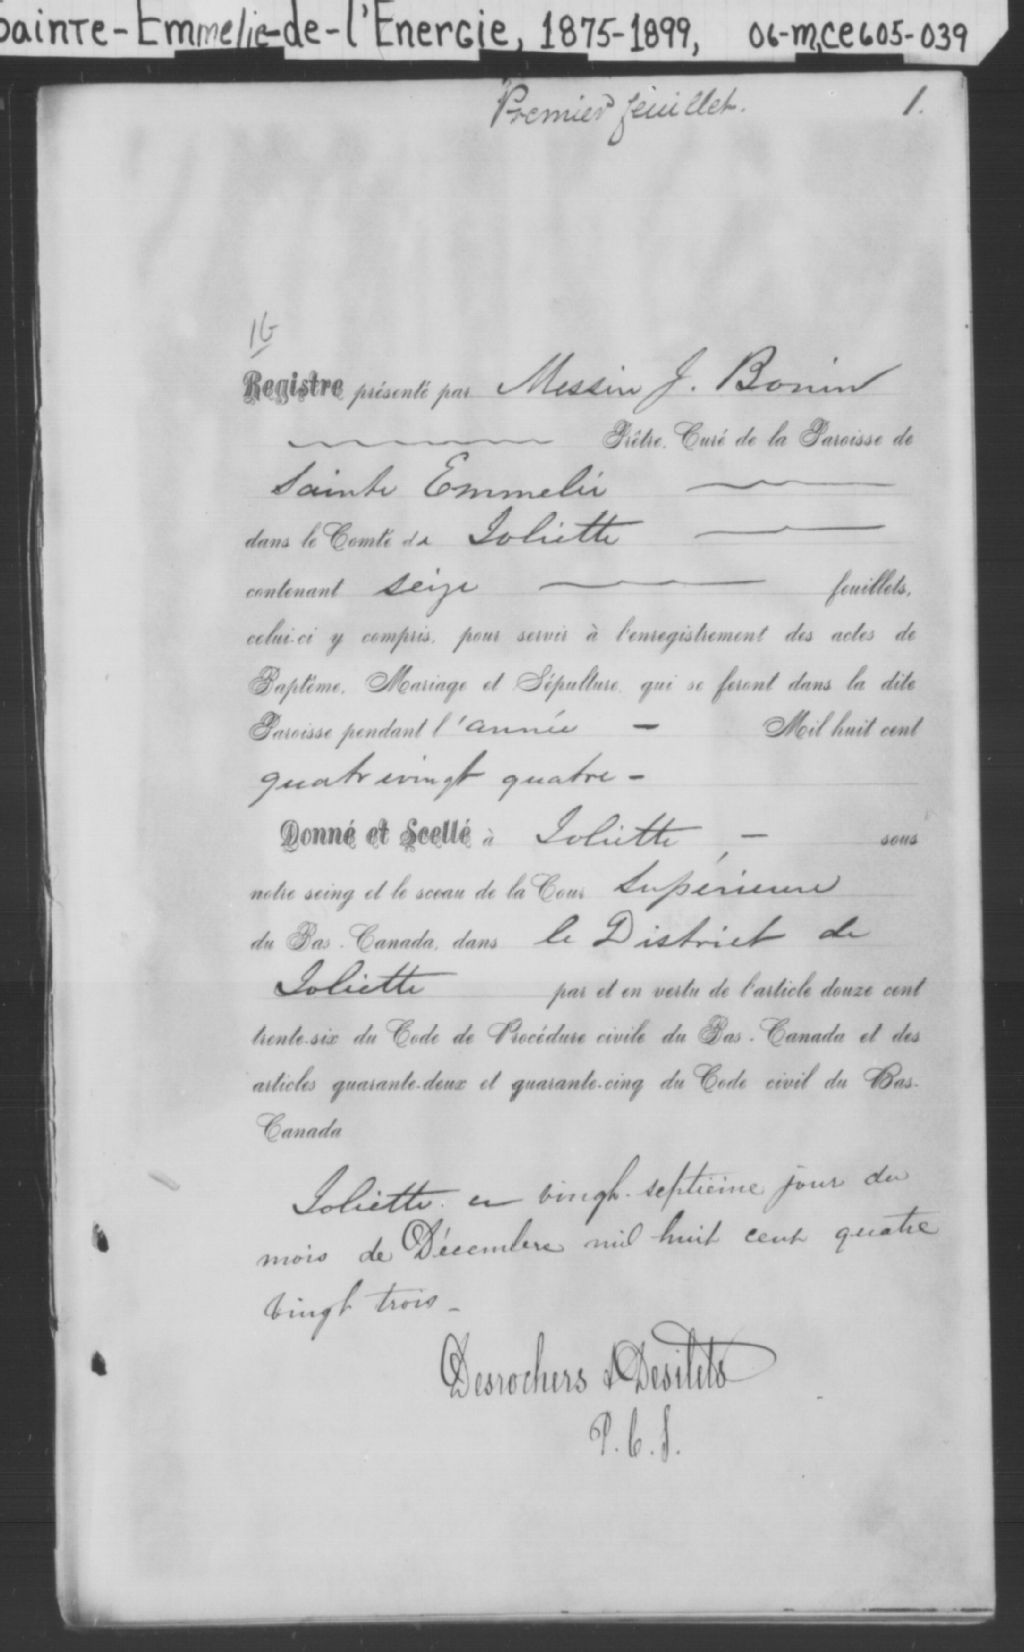 Sainte-Emmelie-de-l'Énergie, 1875-1899, 06-M,CE605-039
Premier feuillet. 1.
16
Registre présenté par Messire J. Bonin
Prêtre, Curé de la Paroisse de
Sainte Emmelie
dans le Comté de Joliette
contenant seize feuillets,
celui-ci y compris, pour servir à l'enregistrement des actes de
Baptême, Mariage et Sépulture, qui se feront dans la dite
Paroisse pendant l'année - Mil huit cent
quatrevingt quatre -
Donné et Scellé à Joliette, - sous
notre seing et le sceau de la Cour Supérieure
du Bas-Canada, dans le District de
Joliette par et en vertu de l'article douze cent
trente-six du Code de Procédure civile du Bas-Canada et des
articles quarante-deux et quarante-cinq du Code civil du Bas-
Canada
Joliette ce vingt-septième jour du
mois de Décembre mil huit cent quatre
vingt trois -
Desrochers & Desilets
P.C.S.